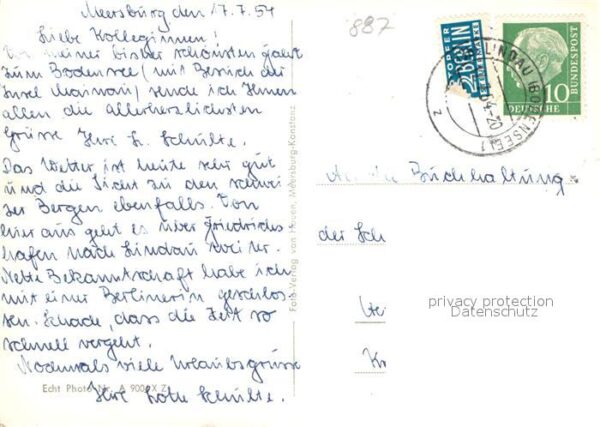 Meersburg den 17.7.54
Liebe Kolleginnen!
Von meiner bisher schönsten Fahrt
zum Bodensee (mit Besuch der
Insel Mainau) sende ich Ihnen
allen die allerherzlichsten
Grüsse Ihre L. Schulte.
Das Wetter ist heute sehr gut
und die Sicht zu den schwei
zer Bergen ebenfalls. Von
hier aus geht es über Friedrichs
hafen nach Lindau weiter.
Nette Bekanntschaft habe ich
mit einer Berlinerin geschlos
sen. Schade, dass die Zeit so
schnell vergeht.
Nochmals viele Urlaubsgrüsse
Ihre Schulte.
Echt Photo Nr. A 900 X Z
Foto-Verlag van Meersburg-Konstanz
887
NOTOPFER
2 BERLIN
STEUERMARKE
LINDAU (BODENSEE) 1
z
10
DEUTSCHE
BUNDESPOST
An die Buchhaltung
der Sch
Kr
privacy protection
Datenschutz